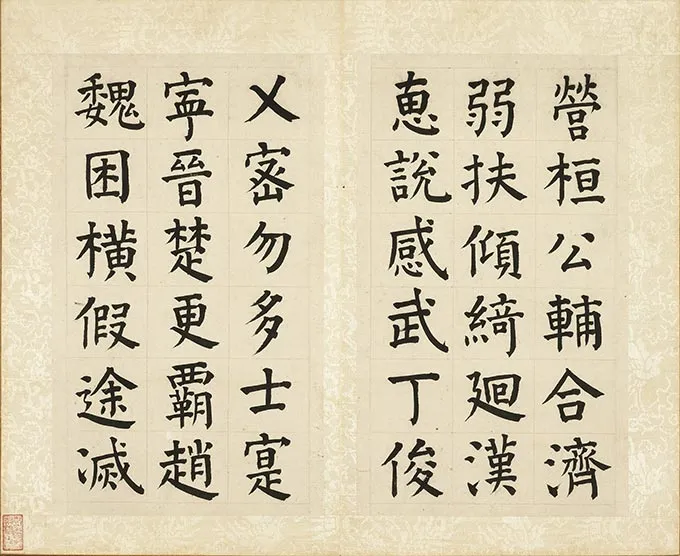 營桓公輔合濟
弱扶傾綺廻漢
恵說感武丁俊
乂宻勿多士寔
寧晉楚更霸趙
魏困橫假途滅